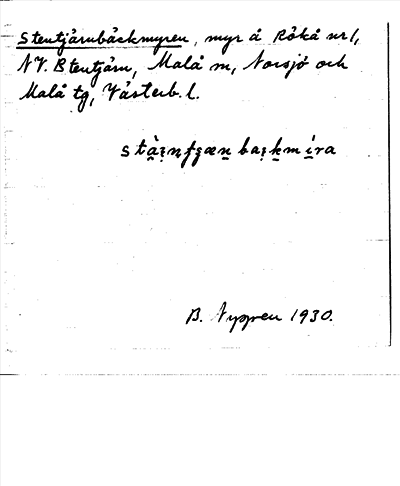 Stentjärnbäckmyren, myr å Röka nr 1,
NV. Stentjärn, Malå sn, Norsjö och
Malå tg, Västerb. l.
B. Nygren 1930.